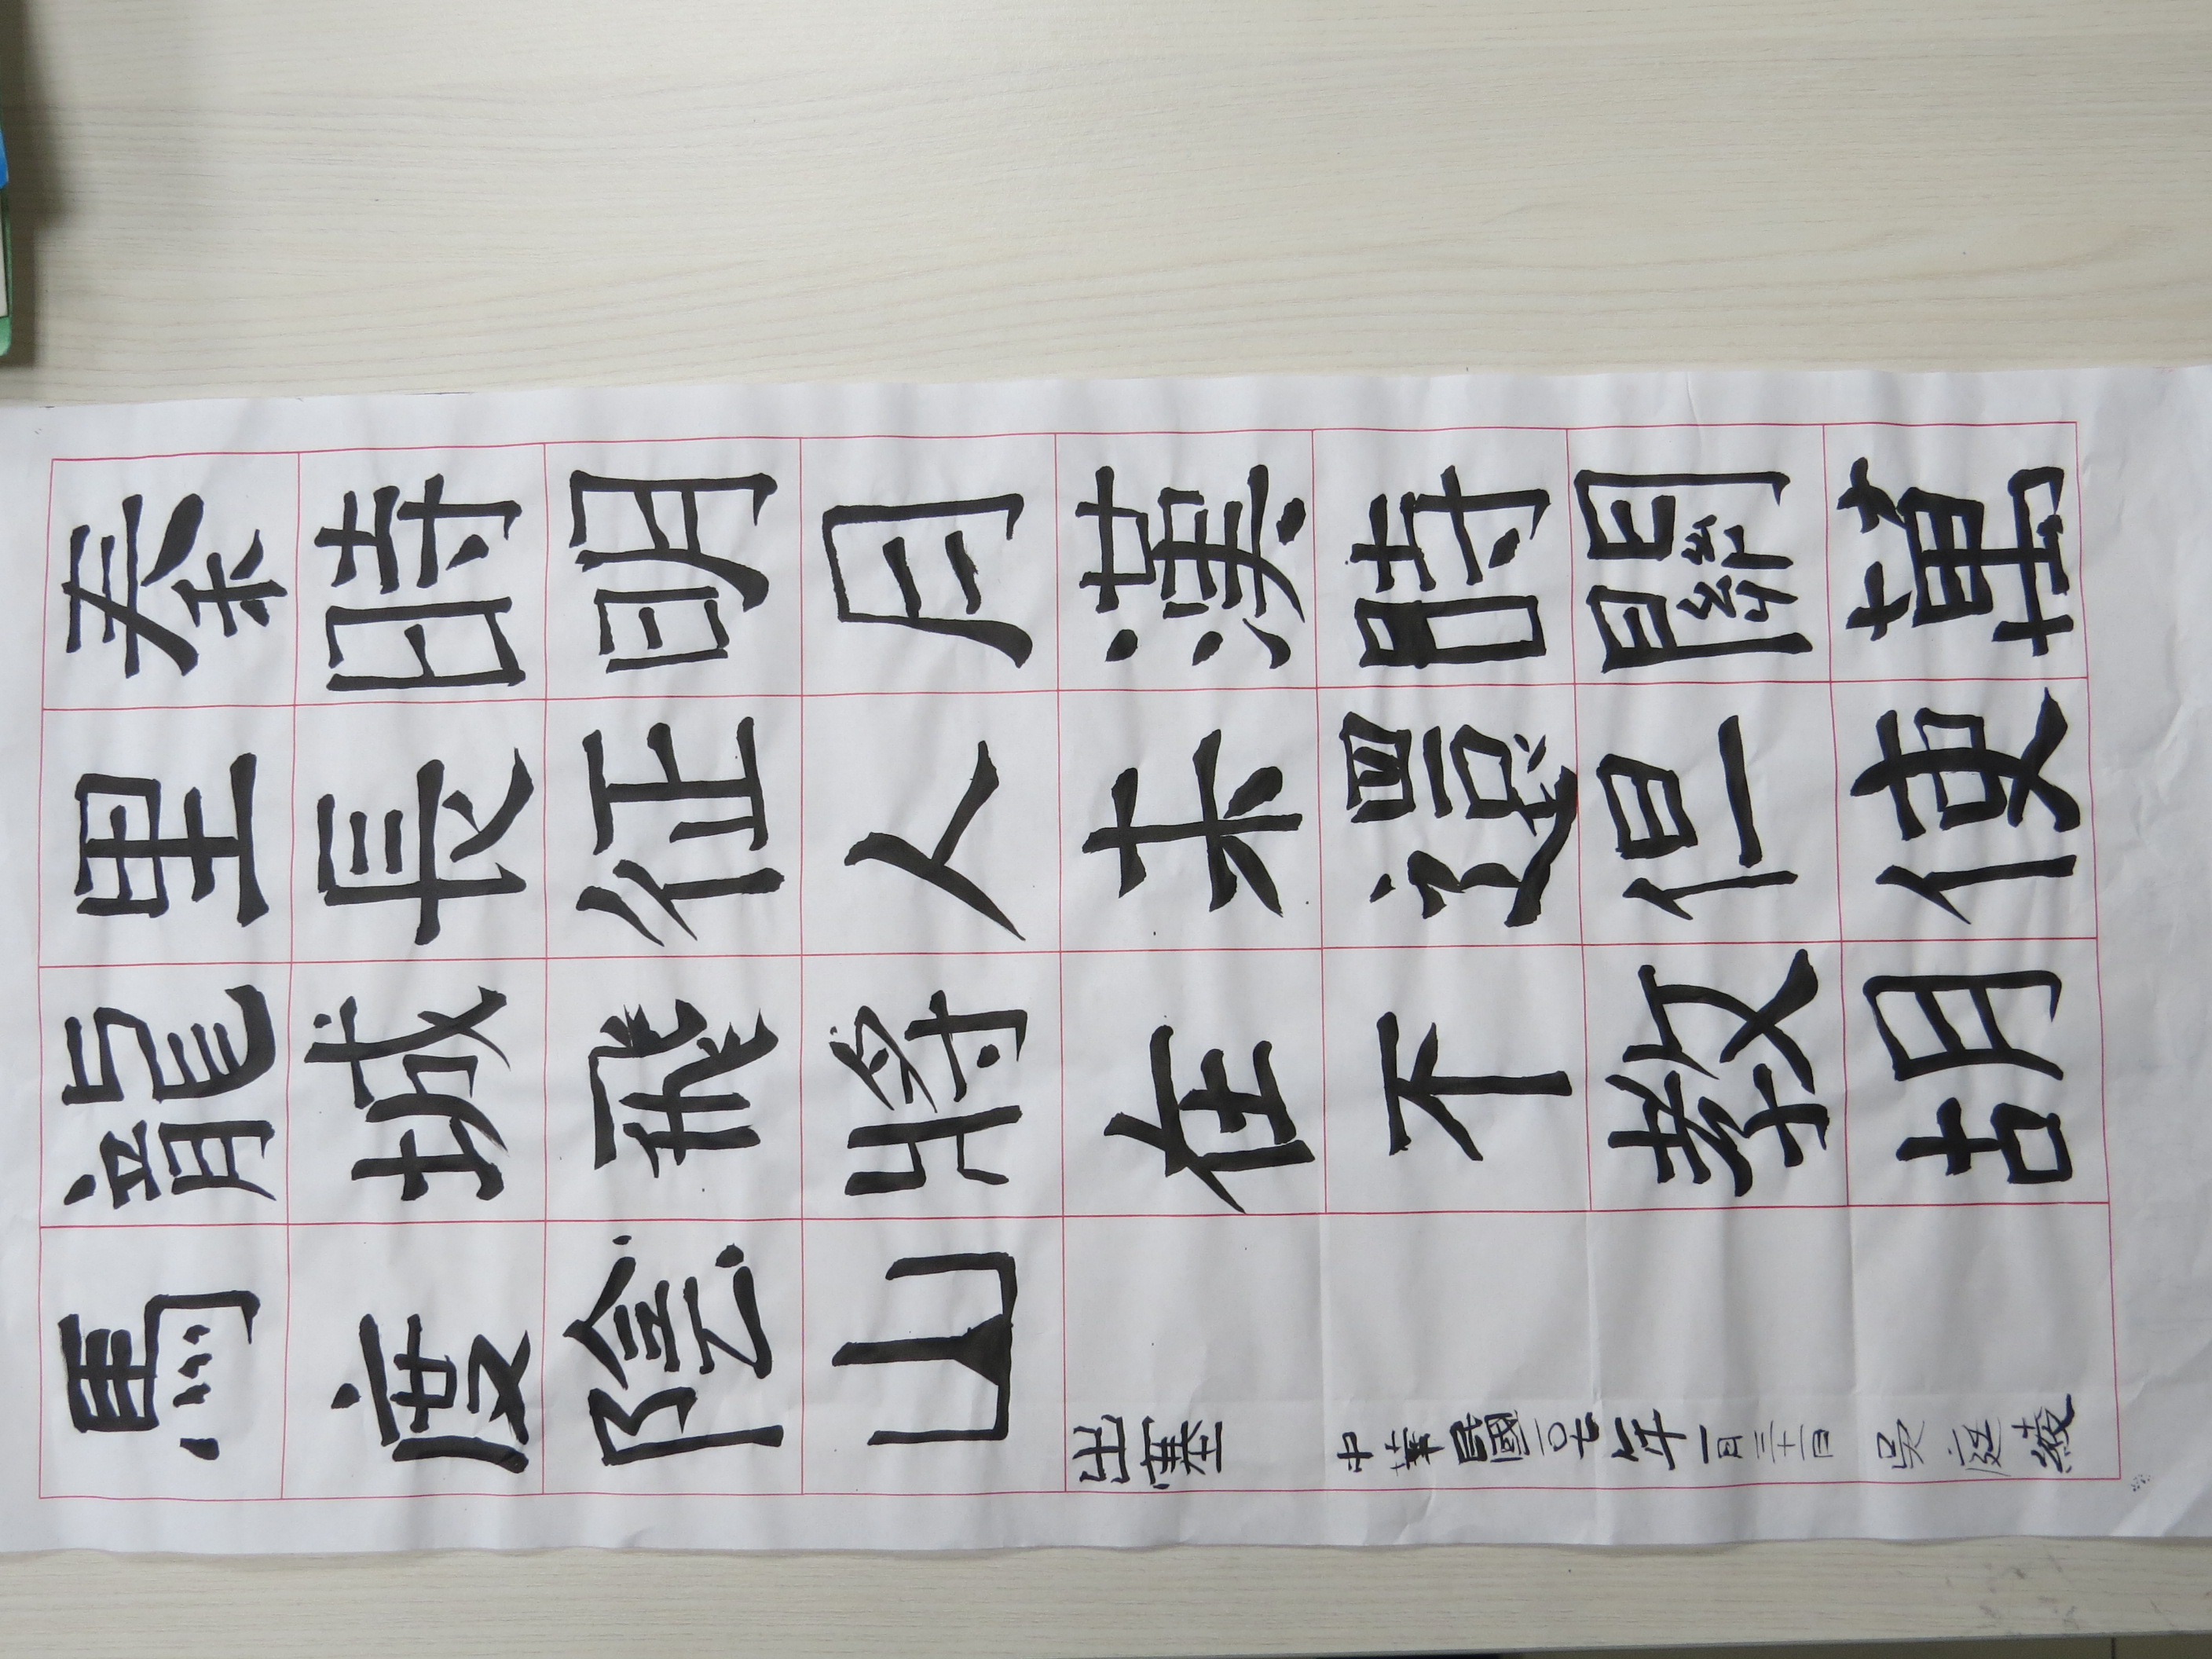 秦時明月漢時關萬
里長征人未還但使
龍城飛將在不教胡
馬度陰山
出塞 中華民國一〇七年一月三十一日 吳庭綾